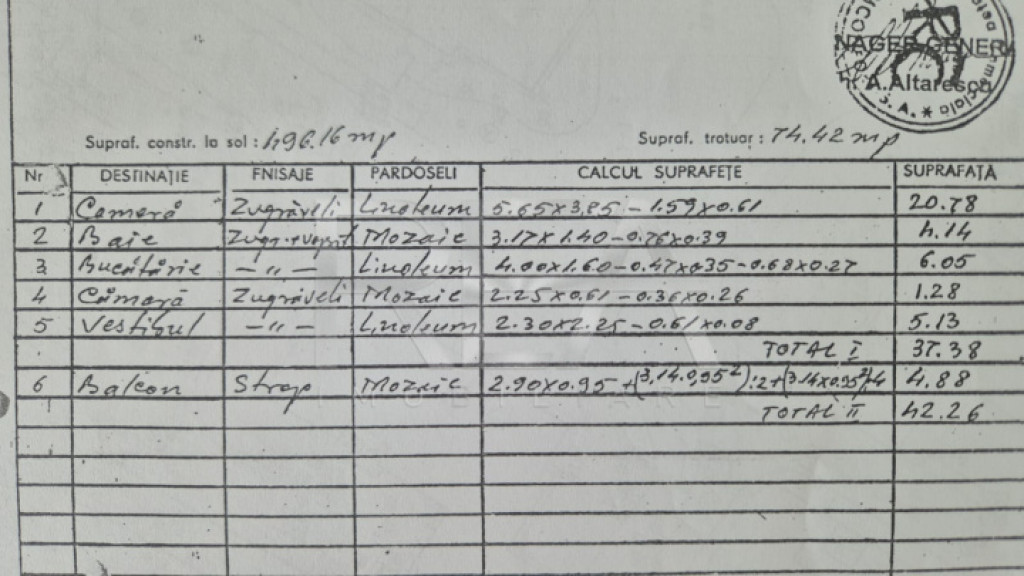 NAGER GENER
A.Altarescu
S.A. *
Supraf. constr. la sol : 496.16 mp Supraf. trotuar : 74.42 mp
Nr DESTINAȚIE FNISAJE PARDOSELI CALCUL SUPRAFEȚE SUPRAFAȚA
1 Cameră Zugrăveli Linoleum 5.65x3.85 - 1.59x0.61 20.78
2 Baie Mozaic 3.17x1.40-0.76x0.39 4.14
3 Bucătărie - „ - Linoleum 4.00x1.60-0.47x0.35-0.68x0.27 6.05
4 Cămară Zugrăveli Mozaic 2.25x0.61-0.36x0.26 1.28
5 Vestibul - „ - Linoleum 2.30x2.25-0.61x0.08 5.13
TOTAL I 37.38
6 Balcon Strop Mozaic 2.90x0.95+(3,14.0,95²):2+(3.14x0.95²):4 4.88
TOTAL II 42.26
IMOBILIARE